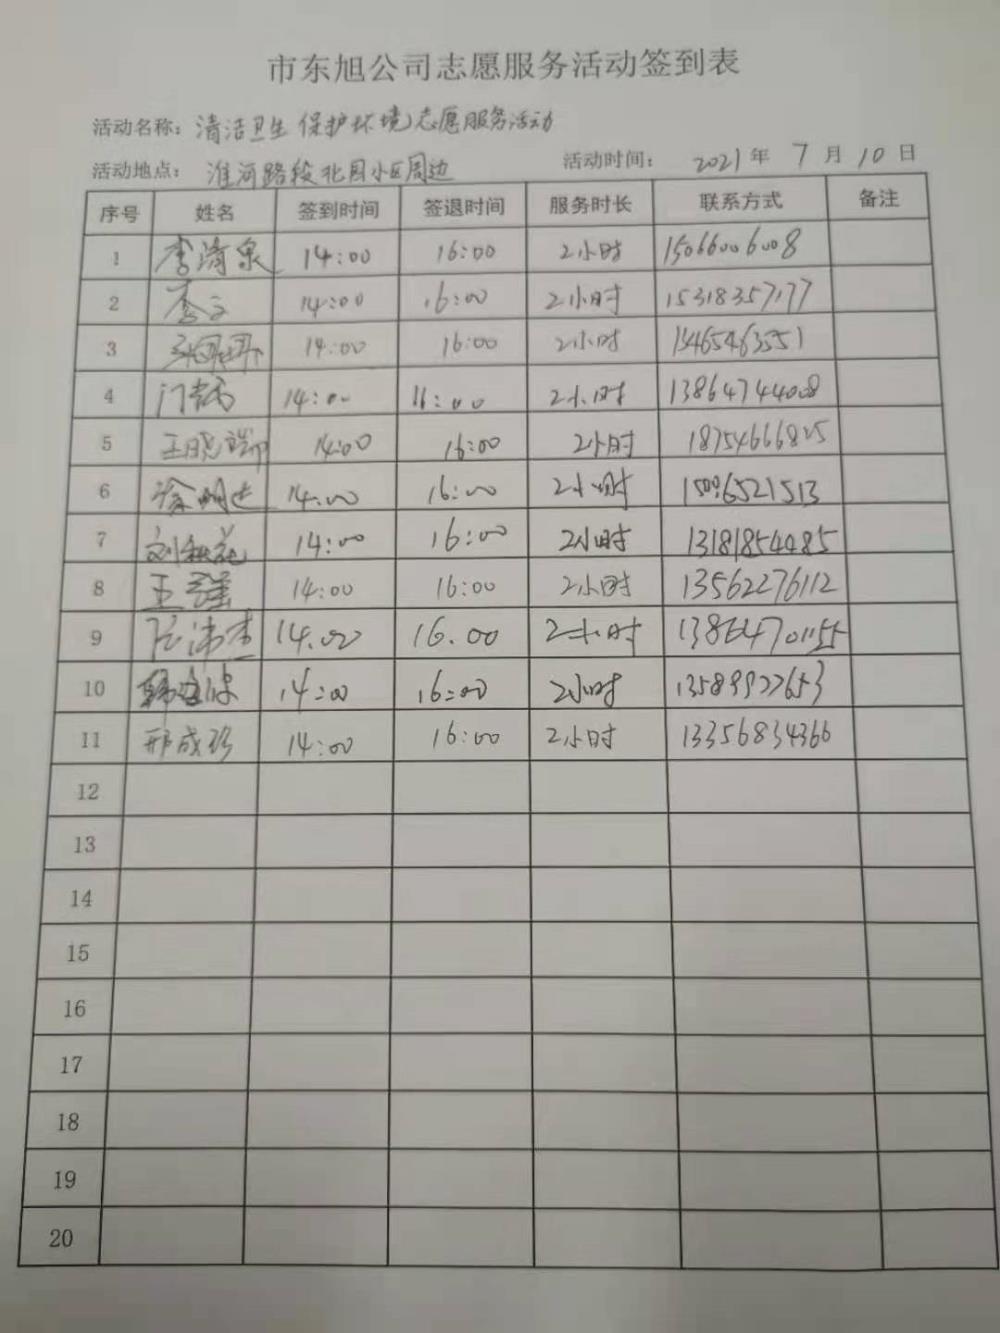 市东旭公司志愿服务活动签到表
活动名称：清洁卫生 保护环境志愿服务活动
活动地点：淮河路段北园小区周边 活动时间：2021年7月10日
序号 姓名 签到时间 签退时间 服务时长 联系方式 备注
1 李清泉 14:00 16:00 2小时 15066006008
2 14:00 16:00 2小时 15318357177
3 14:00 16:00 2小时
4 14:00 16:00 2小时 13864744008
5 王晓瑞 14:00 16:00 2小时
6 徐明进 14:00 16:00 2小时 15096521513
7 14:00 16:00 2小时
8 王强 14:00 16:00 2小时 13562276112
9 14.00 16.00 2小时 13864701155
10 14:00 16:00 2小时
11 邢成珍 14:00 16:00 2小时 13356834366
12
13
14
15
16
17
18
19
20